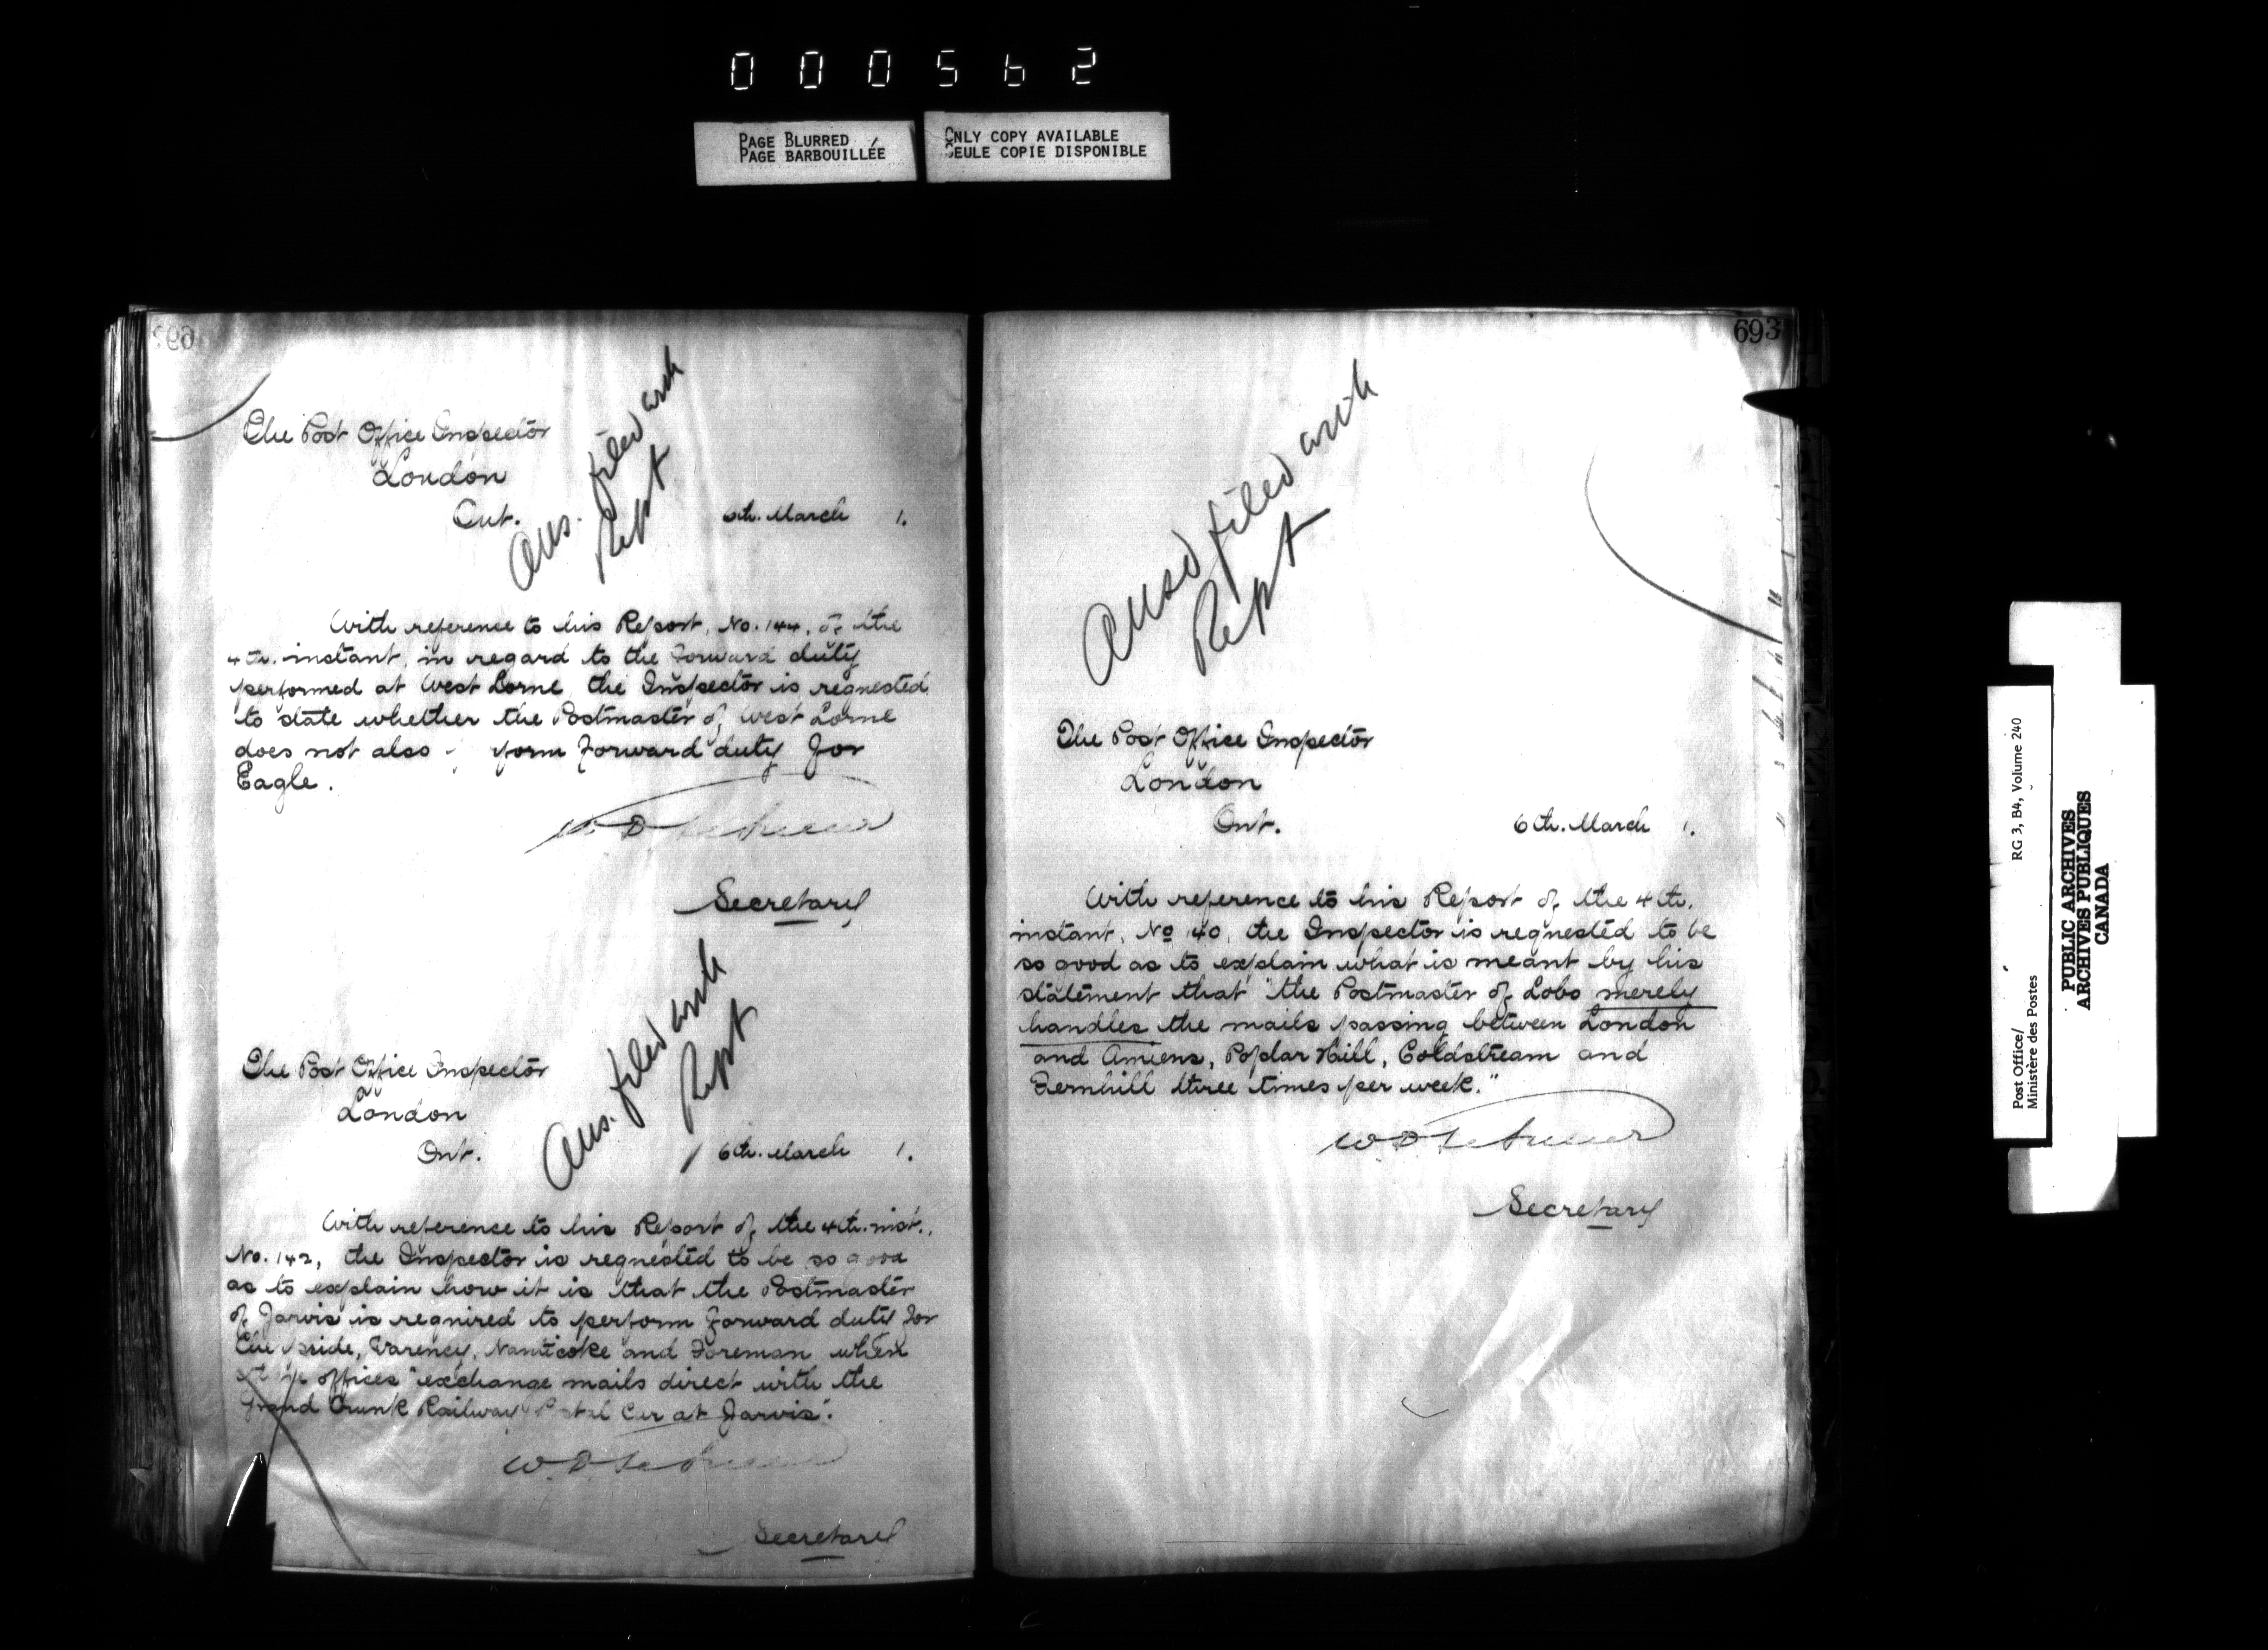 000562
PAGE BLURRED
PAGE BARBOUILLÉE
ONLY COPY AVAILABLE
SEULE COPIE DISPONIBLE
The Post Office Inspector
London
Ont.
6th. March 1.
Ans. filed with
Rept
With reference to his Report, No. 144, of the
4th. instant, in regard to the Forward duty
performed at West Lorne, the Inspector is requested
to state whether the Postmaster of West Lorne
does not also form Forward duty for
Eagle.
Secretary
The Post Office Inspector
London
Ont.
6th. March 1.
Ans. filed with
Rept
With reference to his Report of the 4th. inst.,
No. 142, the Inspector is requested to be so good
as to explain how it is that the Postmaster
of Jarvis is required to perform Forward duty for
Varency, Nanticoke and Foreman when
offices "exchange mails direct with the
Grand Trunk Railway Postal Car at Jarvis".
Secretary
693
Ansd filed with
Rept
The Post Office Inspector
London
Ont.
6th. March 1.
With reference to his Report of the 4th.
instant, No 140, the Inspector is requested to be
so good as to explain what is meant by his
statement that "the Postmaster of Lobo merely
handles the mails passing between London
and Amiens, Poplar Hill, Coldstream and
Fernhill three times per week."
Secretary
Post Office/
Ministère des Postes
RG 3, B4, Volume 240
PUBLIC ARCHIVES
ARCHIVES PUBLIQUES
CANADA